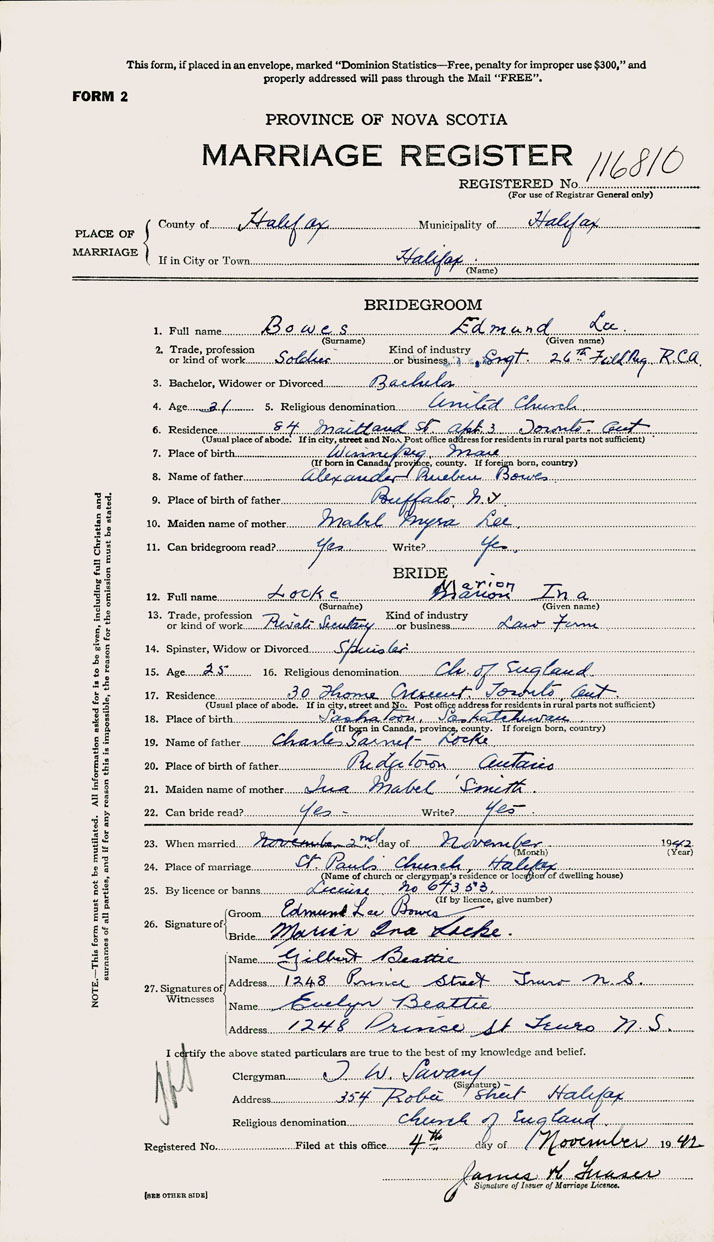 This form, if placed in an envelope, marked “Dominion Statistics—Free, penalty for improper use $300,” and
properly addressed will pass through the Mail “FREE”.
FORM 2
PROVINCE OF NOVA SCOTIA
MARRIAGE REGISTER
116810
REGISTERED No.
(For use of Registrar General only)
PLACE OF MARRIAGE
County of Halifax Municipality of Halifax
If in City or Town Halifax
(Name)
BRIDEGROOM
1. Full name Bowes Edmund Lee.
(Surname) (Given name)
2. Trade, profession or kind of work Soldier Kind of industry or business Sergt. 26th Field Reg. R.C.A.
3. Bachelor, Widower or Divorced Bachelor
4. Age 21 5. Religious denomination United Church
6. Residence 84 Maitland St Apt. 3 Toronto. Ont
(Usual place of abode. If in city, street and No. Post office address for residents in rural parts not sufficient)
7. Place of birth Winnipeg
(If born in Canada, province, county. If foreign born, country)
8. Name of father Alexander Rueben Bowes
9. Place of birth of father Buffalo, N.Y
10. Maiden name of mother Mabel Myra Lee
11. Can bridegroom read? Yes Write? Yes
BRIDE
Marion
12. Full name Locke Marion Ina
(Surname) (Given name)
13. Trade, profession or kind of work Private Secretary Kind of industry or business Law Firm
14. Spinster, Widow or Divorced Spinster
15. Age 25 16. Religious denomination Ch. of England
17. Residence 30 Thome Crescent. Toronto, Ont.
(Usual place of abode. If in city, street and No. Post office address for residents in rural parts not sufficient)
18. Place of birth Saskatoon, Saskatchewan
(If born in Canada, province, county. If foreign born, country)
19. Name of father Charles Locke
20. Place of birth of father Ridgetown Ontario
21. Maiden name of mother Ina Mabel Smith.
22. Can bride read? Yes - Write? Yes -
23. When married November 2nd day of November 1942
(Month) (Year)
24. Place of marriage St. Pauls Church, Halifax
(Name of church or clergyman's residence or location of dwelling house)
25. By licence or banns License No 64353
(If by licence, give number)
26. Signature of
Groom Edmund Lee Bowes
Bride Marion Ina Locke.
27. Signatures of Witnesses
Name Gilbert Beattie
Address 1248 Prince Street Truro N.S.
Name Evelyn Beattie
Address 1248 Prince St Truro N.S.
I certify the above stated particulars are true to the best of my knowledge and belief.
Clergyman T. W. Savary
(Signature)
Address 354 Robie Street Halifax
Religious denomination Church of England.
Registered No. Filed at this office 4th day of November 1942
James H Fraser
Signature of Issuer of Marriage Licence.
[SEE OTHER SIDE]
NOTE.—This form must not be mutilated. All information asked for is to be given, including full Christian and
surnames of all parties, and if for any reason this is impossible, the reason for the omission must be stated.